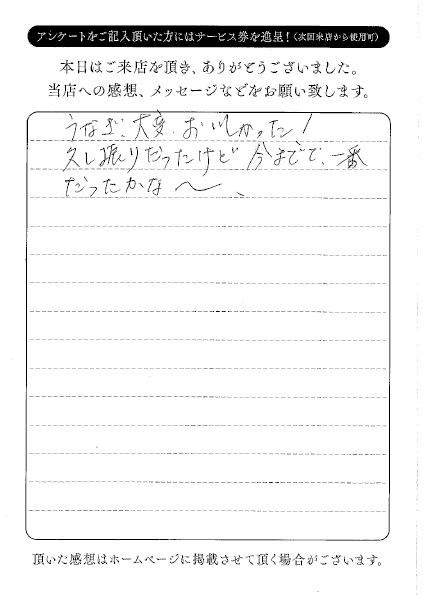 アンケートをご記入頂いた方にはサービス券を進呈！（次回来店から使用可）
本日はご来店を頂き、ありがとうございました。
当店への感想、メッセージなどをお願い致します。
うなぎ、大変、おいしかった！
久し振りだったけど 今までで、一番
だったかな〜、
頂いた感想はホームページに掲載させて頂く場合がございます。